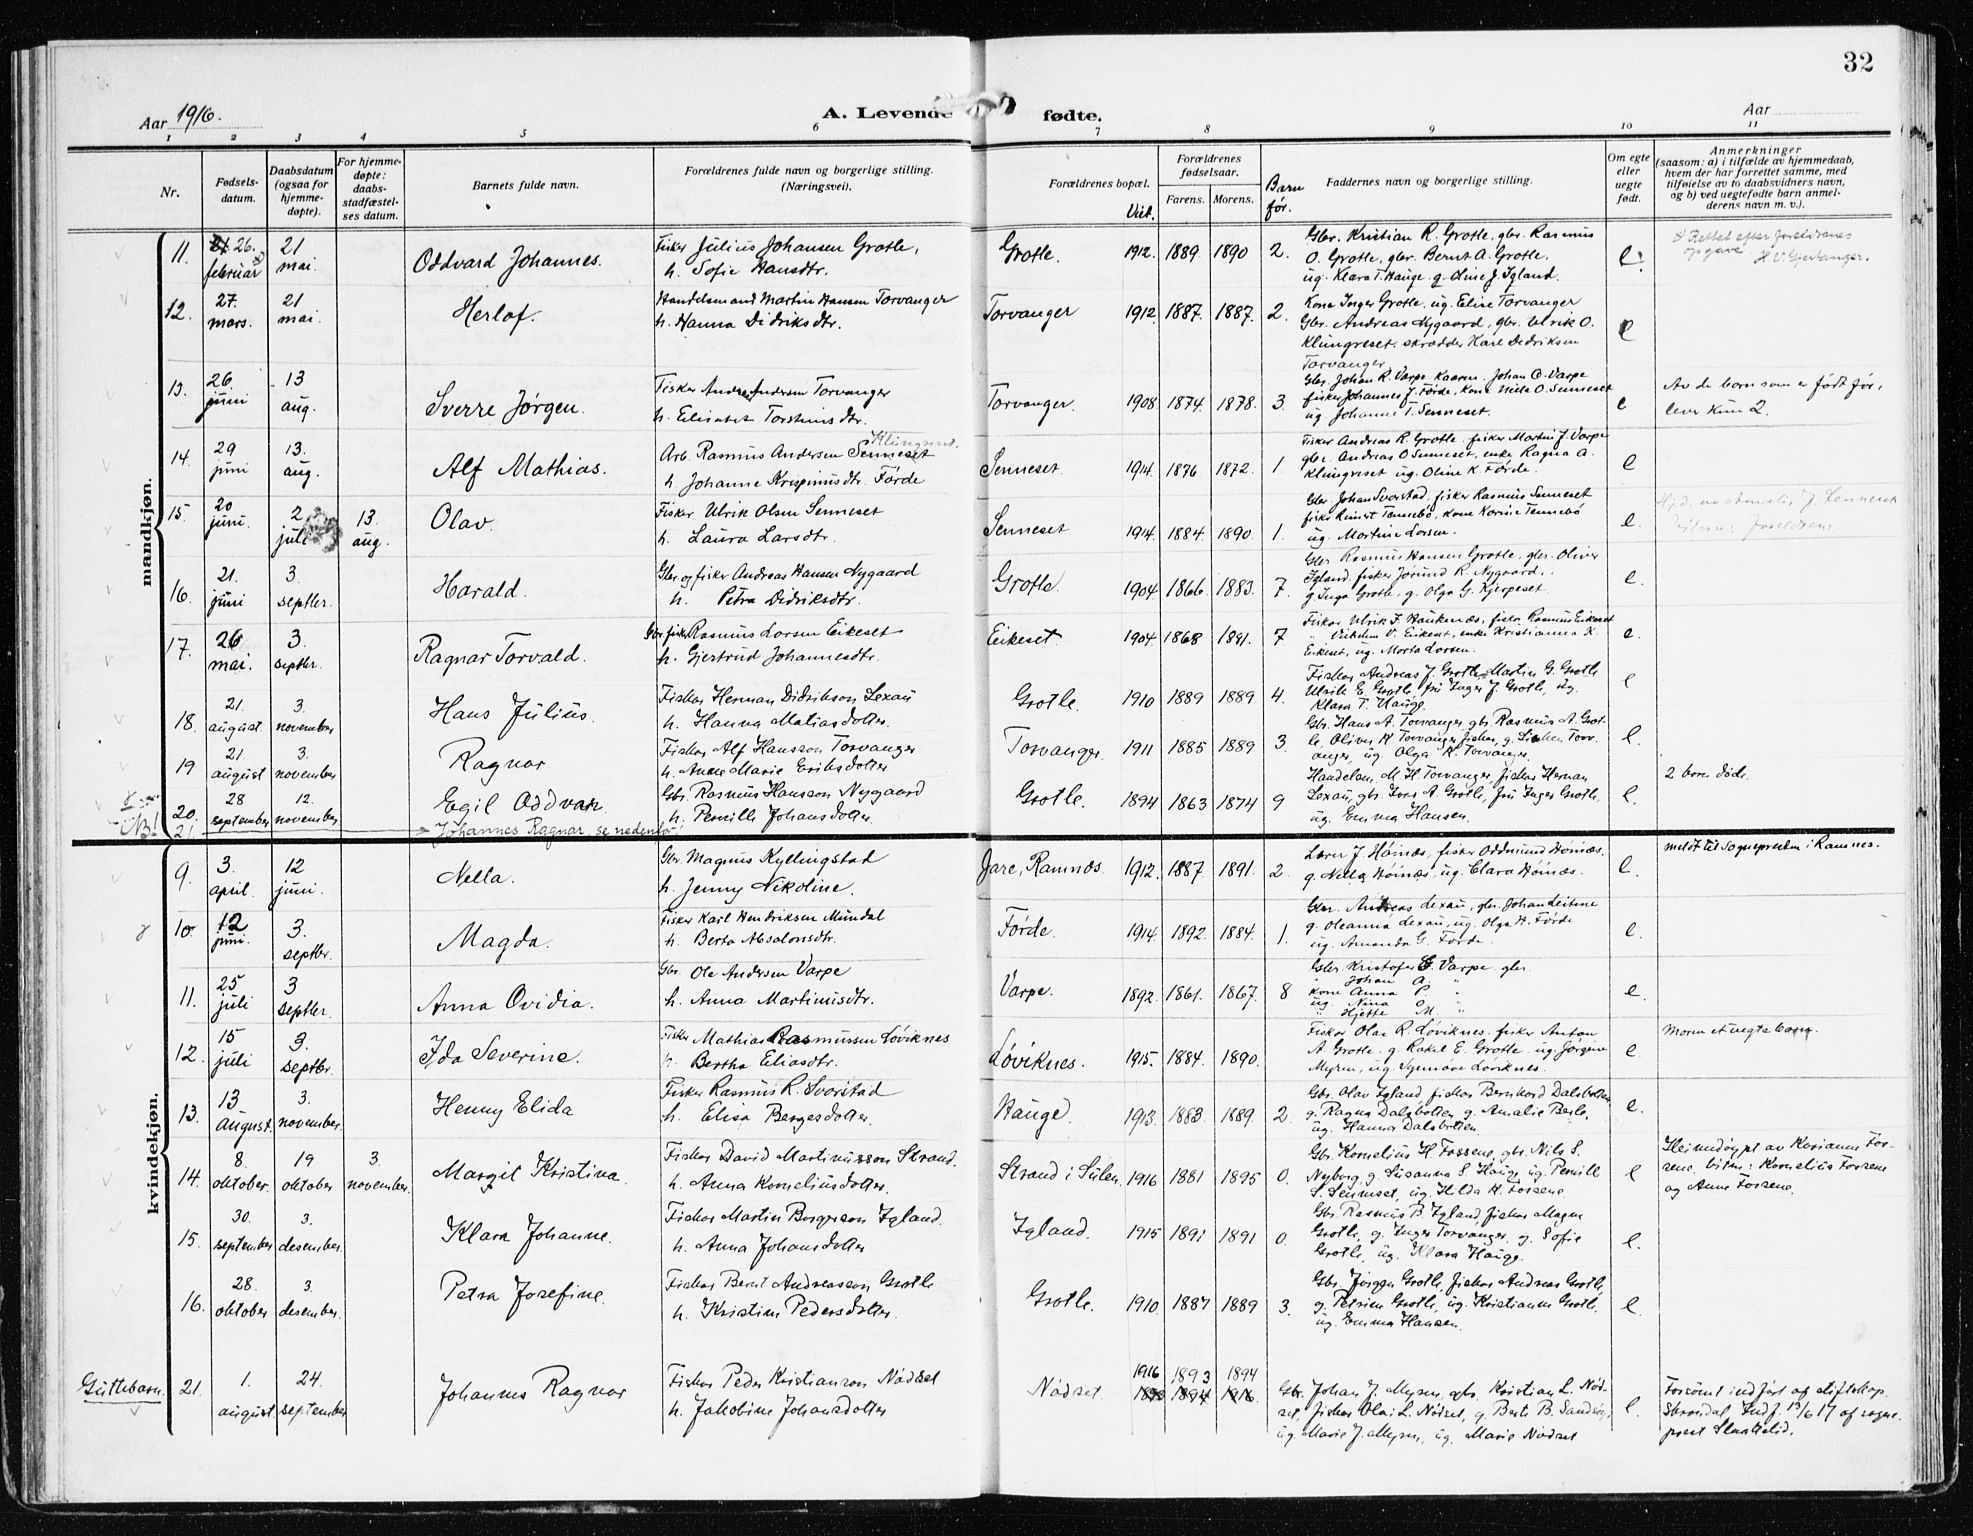 32
Aar 1916.
A. Levende fødte.
Aar
1 2 3 4 5 6 7 8 9 10 11
Nr.
Fødsels-
datum.
Daabsdatum
(ogsaa for
hjemme-
døpte).
For hjemme-
døpte:
daabs-
stadfæstel-
ses datum.
Barnets fulde navn.
Forældrenes fulde navn og borgerlige stilling.
(Næringsvei).
Forældrenes bopæl.
Viet.
Forældrenes
fødselsaar.
Farens. Morens.
Barn
før.
Faddernes navn og borgerlige stilling.
Om egte
eller
uegte
født.
Anmerkninger
(saasom: a) i tilfælde av hjemmedaab,
hvem der har forrettet samme, med
tilføielse av to daabsvidners navn,
og b) ved uegtefødte barn anmel-
derens navn m. v.).
mandkjøn.
11. 26. februar 21 mai. Oddvard Johannes.
Fisker Julius Johansen Grotle,
h. Sofie Hansdtr.
Grotle. 1912. 1889 1890 2.
Gbr. Kristian R. Grotle, gbr. Rasmus
O. Grotle, gbr. Bernt A. Grotle,
ug. Klara T. Hauge g. Oline J. Igland.
e.
Rettet efter foreldrenes
opgave
12. 27. mars. 21 mai. Herlof.
Handelsmand Martin Hansen Torvanger
h. Hanna Didriksdtr.
Torvanger 1912. 1887. 1887. 2.
Kone Inger Grotle, ug. Elise Torvanger
Gbr. Andreas Nygaard, gbr. Ulrik O.
Klungreset. skrædder Karl Didriksen
Torvanger
e
13. 26. juni 13 aug. Sverre Jørgen.
Fisker Andreas Andersen Torvanger
h. Elisabet Torsteinsdtr.
Torvanger. 1908. 1874. 1878. 3.
Gbr. Johan R. Varpe Johan O. Varpe
fisker Johannes J. Førde, kone Nille O. Senneset
ug. Johanne T. Senneset.
e
Av de born som er født før,
lever kun 2.
14. 29 juni 13. aug. Alf Mathias.
Klungreset.
Arb. Rasmus Andersen Senneset
h. Johanne Krispinusdtr. Førde
Senneset. 1914. 1876. 1872. 1
Fisker Andreas R. Grotle. fisker Martin J. Varpe
gbr. Andreas O Senneset, enke Ragna A.
Klungreset ug. Oline K. Førde.
e
15. 20 juni. 2. juli 13. aug. Olav
Fisker Ulrik Olsen Senneset
h. Laura Larsdtr.
Senneset 1914. 1884. 1890. 1.
Gbr. Johan Svorstad, fisker Rasmus Senneset
fisker Reinert Tennebø, kone Karine Tennebø
ug. Martine Larsen.
e.
16. 21. juni 3. septbr. Harald.
Gbr og fisker Andreas Hansen Nygaard
h. Petra Didriksdtr.
Grotle. 1904. 1866. 1883. 7.
Gbr Rasmus Hansen Grotle, gbr. Oliver
Igland, fisker Jørund R. Nygaard,
g. Inga Grotle, g. Olga G. Kjerpeset.
e.
17. 26 mai. 3. septbr. Ragnar Torvald.
Gbr, fisker Rasmus Larsen Eikeset
h. Gjertrud Johannesdtr.
Eikeset 1904. 1868 1881. 7
Fisker Ulrik F. Haukenæs, fisker Rasmus Eikeset
" Vilhelm V. Eikeset, enke Kristianna K.
Eikeset, ug. Marta Larsen.
e.
18. 21. august 3. november Hans Julius.
Fisker Herman Didrikson Lexau
h. Hanna Matiasdotter.
Grotle. 1910 1889 1889 4.
Fisker Andreas J. Grotle, Martin G. Grotle
Ulrik E. Grotle, frú Inger J. Grotle, ug.
Klara T. Hauge.
e
19 21. august 3. november Ragnar
Fisker Alf Hansson Torvanger
h. Anne Marie Eriksdotter
Torvanger 1911 1885 1889 3.
Gbr. Hans A. Torvanger, gbr Rasmus A. Grot-
le, Oliver H Torvanger fisker, g. Lisken Torv-
anger, ug. Olga R. Torvanger.
e.
20. 28 september 12. november Egil Oddvar.
Gbr. Rasmus Hansson Nygaard
h. Pernille Johansdotter.
Grotle. 1894 1863 1874 9
Handelsm. M. H. Torvanger, fisker Herman
Lexau, gbr. Ivar A. Grotle, frú Inger Grotle,
ug. Emma Hansen.
e.
2 born døde.
NB! 21. Johannes Ragnar, se nedenfor!
kvindekjøn.
9. 3. april. 12 juni. Nella.
Gbr. Magnus Kyllingstad
h. Jenny Nikoline.
Jare, Ramnæs. 1912. 1887. 1891. 2.
Lærer J. Høinæs, fisker Oddmund Høinæs.
g. Nella Høinæs, ug. Clara Høinæs.
e.
meldt til Sognepresten i Ramnes.
10. 12 juni. 3. septbr. Magda.
Fisker Karl Hendriksen Mundal
h. Berta Absalonsdtr.
Førde. 1914. 1892. 1884. 1.
Gbr. Andreas Lexau, gbr. Johan Leitene
g. Oleanna Lexau, ug. Olga H. Førde
ug. Amanda G. Førde.
e.
11. 25 juli 3 septbr. Anna Ovidia.
Gbr. Ole Andersen Varpe
h. Anna Martinusdtr.
Varpe. 1892. 1861. 1867. 8
Gbr. Kristofer Varpe gbr.
Johan A. "
kone Anna P. "
ug. Nina O. "
Hjette M. "
e.
12. 15 juli 3. septbr. Ida Severine.
Fisker Mathias Rasmussen Løviknes
h. Bertha Eliasdtr.
Løviknes. 1915. 1884. 1890.
Fisker Olav R. Løviknes. fisker Anton
A. Grotle. g. Rakel E. Grotle. ug. Jørgine
Myren, ug. Synnøve Løviknes.
e.
Moren et uegte barn.
13. 13 August. 3. november. Henny Elida
Fisker Rasmus R. Svorstad
h. Elisa Bergesdotter.
Hauge. 1913. 1883. 1889. 2.
Gbr. Olav Igland, fisker Bernhard Dalsbotten,
g. Ragna Dalsbotten g. Amalie Berle,
ug. Hanna Dalsbotten.
e.
14. 8. oktober. 19 oktober 3. november. Margit Kristina.
Fisker David Martinusson Strand.
h. Anna Korneliusdotter.
Strand i Sulen. 1916 1881 1895 0.
Gbr. Kornelius H. Fossene, gbr. Nils S.
Nyborg, g. Susanna S. Hauge, ug. Pernille
S. Senneset, ug. Hilda K. Fossene.
e
Heimedøypt av Karianne Fos-
sene. vitne: Kornelius Fossene
og Anne Fossene.
15. 30. september 3. desember. Klara Johanne.
Fisker Martin Bergeson Igland.
h. Anna Johansdotter.
Igland. 1915 1891 1891 0.
Gbr. Rasmus B. Igland, fisker Magne
Grotle, g. Inger Torvanger, g. Sofie
Grotle, ug. Klara Hauge.
e.
16. 28. oktober 3. desember. Petra Josefine.
Fisker Bernt Andreasson Grotle
h. Kristine Pedersdotter.
Grotle. 1910 1887 1889 3.
Gbr. Jørgen Grotle, fisker Andreas Grotle,
g. Petrine Grotle, ug. Kristianne Grotle,
ug. Emma Hansen.
e.
Guttebarn. 21. 1. august 24. september Johannes Ragnar
Fisker Peder Kristianson Nødset
h. Jakobine Johansdotter
Nødset. 1916 1893 1894
1893 1894 1916.
Gbr. Johan J. Myren, gbr. Kristian L. Nød-
set, fisker Olai L. Nødset, g. Berte B. Sandsøy,
ug. Marie J. Myren, ug. Marie Nødset
e.
Forsømt indført af stiftskap.
Strømdal. Indf. 13/6 17 af sogne-
prest Skaatelid.